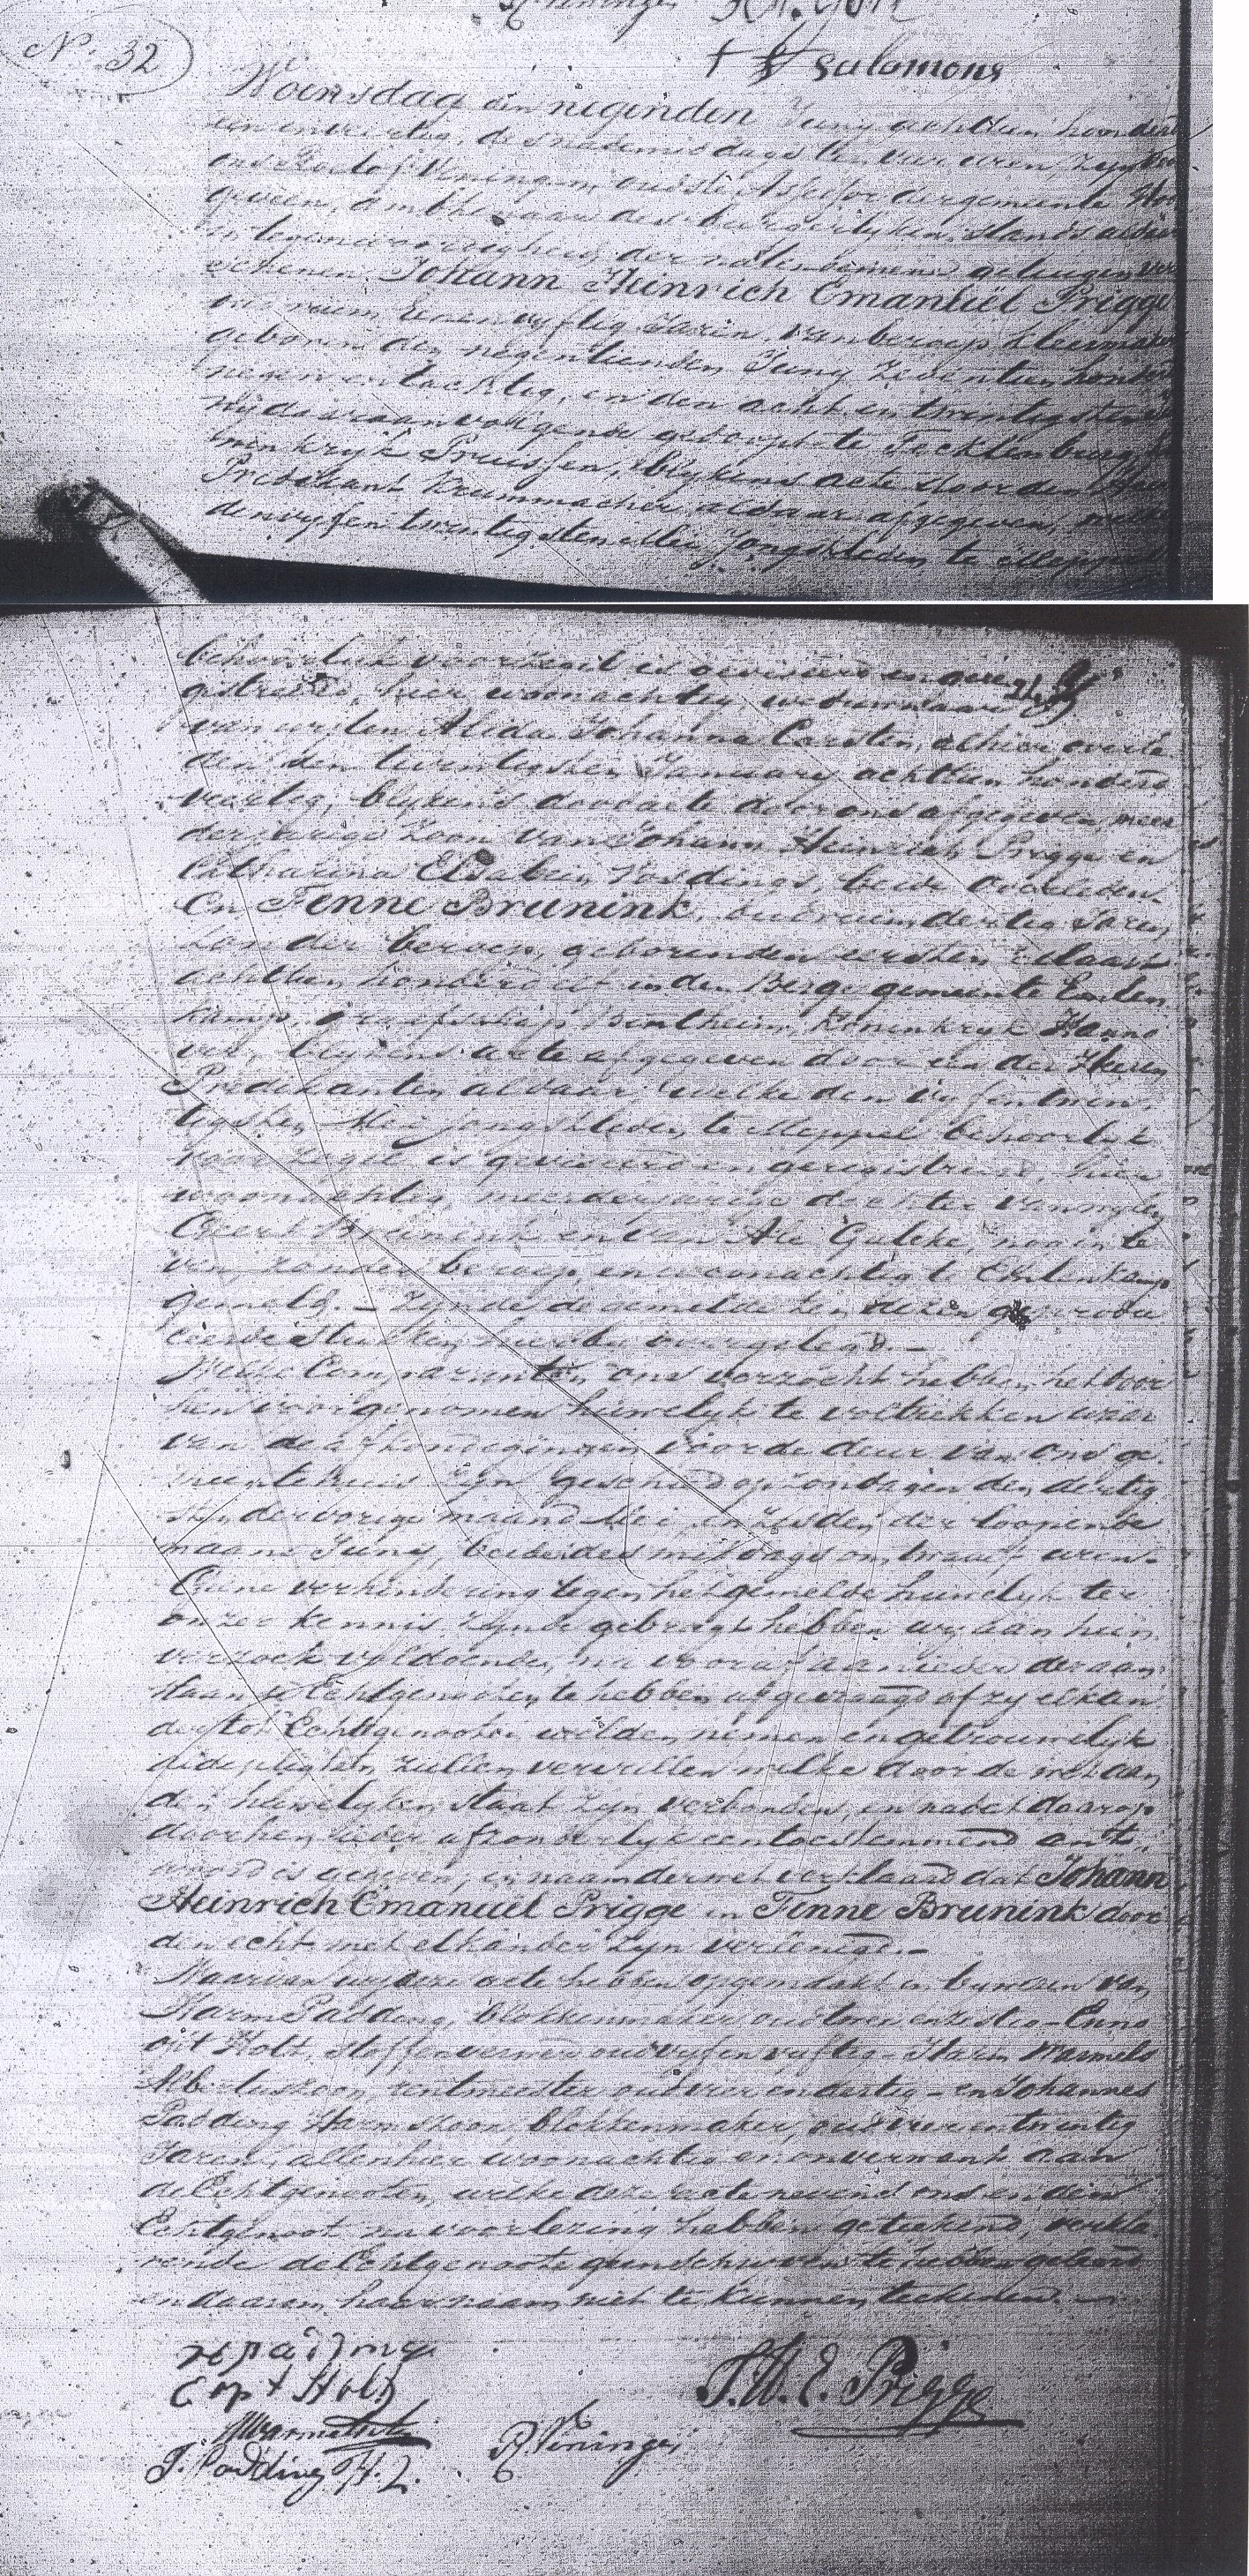 R Kninger
N.o 32
salomons
Woensdag den negenden Juny achttien honderd
een en veertig, des namiddags ten uren, zyn voor
ons Roelof Weningen oudste Assessor der gemeente
ambtenaar des burgerlyken stands
in tegenwoordigheid der natenoemene getuigen ver
schenen Johann Heinrich Emanuël Prigge
oud ruim Eenenvyftig Jaren, van beroep kleermaker
geboren den negentienden Juny zeventien honderd
negen en tachtig, en den acht en twintigsten
gedoopt te Tecklenburg,
ninkryk Pruissen, blykens acte door den Heer
Predikant Krummacher aldaar afgegeven, welke
den vyf en twintigsten Mei jongstleden te Meppel
behoorlyk voor zegel is geviseerd en gere
gistreerd, hier woonachtig, weduwnaar
van wylen Alida Johanna Carsten, alhier overle
den den twintigsten January achttien honderd
veertig, blykens doodacte door ons afgegeven, meer
derjarige zoon van Johann Heinrich Prigge en
Catharina Elsabein beide overleden.
En Fenne Brunink, oud ruim dertig Jaren
zonder beroep, geboren den eersten Maart
achttien honderd elf in den Berge gemeente Emlen
kamp, graafschap Bentheim, Koninkryk Hanno
ver, blykens acte afgegeven door een der Heeren
Predikanten aldaar welke den vyf en twin
tigsten Mei jongstleden te Meppel behoorlyk
voor zegel is geviseerd en geregistreerd, hier
woonachtig, meerderjarige dochter van wylen
Geert Brunink en van Ale Galske, nog in le
ven, zonder beroep, en woonachtig te Emlenkamp
gemeld. — Zynde de gemelde ten dezen geprodu
ceerde stukken hierby overgelegd. —
Welke Comparanten ons verzocht hebben het door
hen voorgenomen huwelyk te voltrekken waar
van de afkondigingen voor de deur van ons ge
meentehuis zyn geschied op zondagen den dertig
sten der vorige maand Mei, en zesden der loopende
maand Juny, beide des middags om twaalf uren.
Geene verhindering tegen het gemelde huwelyk ter
onzer kennis zynde gebragt hebben wy aan hun
verzoek voldoende, na vooraf aan ieder der aan
staande Echtgenooten te hebben afgevraagd of zy elkan
der tot Echtgenooten wilden nemen en getrouwelyk
die pligten zullen vervullen welke door de wet aan
den huwelyken staat zyn verbonden, en nadat daarop
door hen ieder afzonderlyk een toestemmend ant
woord is gegeven, in naam der wet verklaard dat Johann
Heinrich Emanuël Prigge en Fenne Brunink door
den echt met elkander zyn vereenigd. —
Waarvan wy deze acte hebben opgemaakt in bywezen van
Harm Padding, blokkenmaker oud twee en zestig — Enno
oirt Holt, stoffenverwer oud vyf en vyftig — Harm Warmels
Albertuszoon, rentmeester oud vier en dertig — en Johannes
Padding Harmszoon, blokkenmaker, oud vier en twintig
Jaren, allen hier woonachtig en onverwant aan
de Echtgenooten, welke deze acte nevens ons en den
Echtgenoot na voorlezing hebben geteekend, verkla
rende de Echtgenoote geen schryven te hebben geleerd
en daarom haar naam niet te kunnen teekenen. —
H padding
E op t Holt
J. H. E. Prigge
J. Padding H. Z.